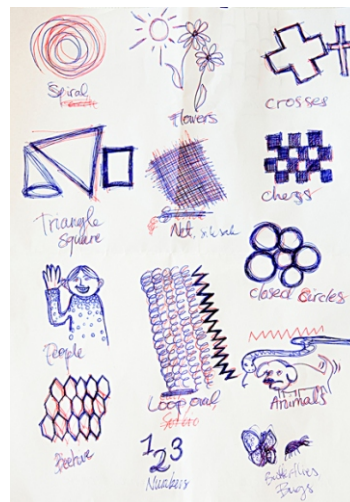 Spiral
Flowers
crosses
Triangle
square
Net,
chess
closed circles
People
Loop oval
Animals
Beehive
123
Numbers
Butterflies
Bugs